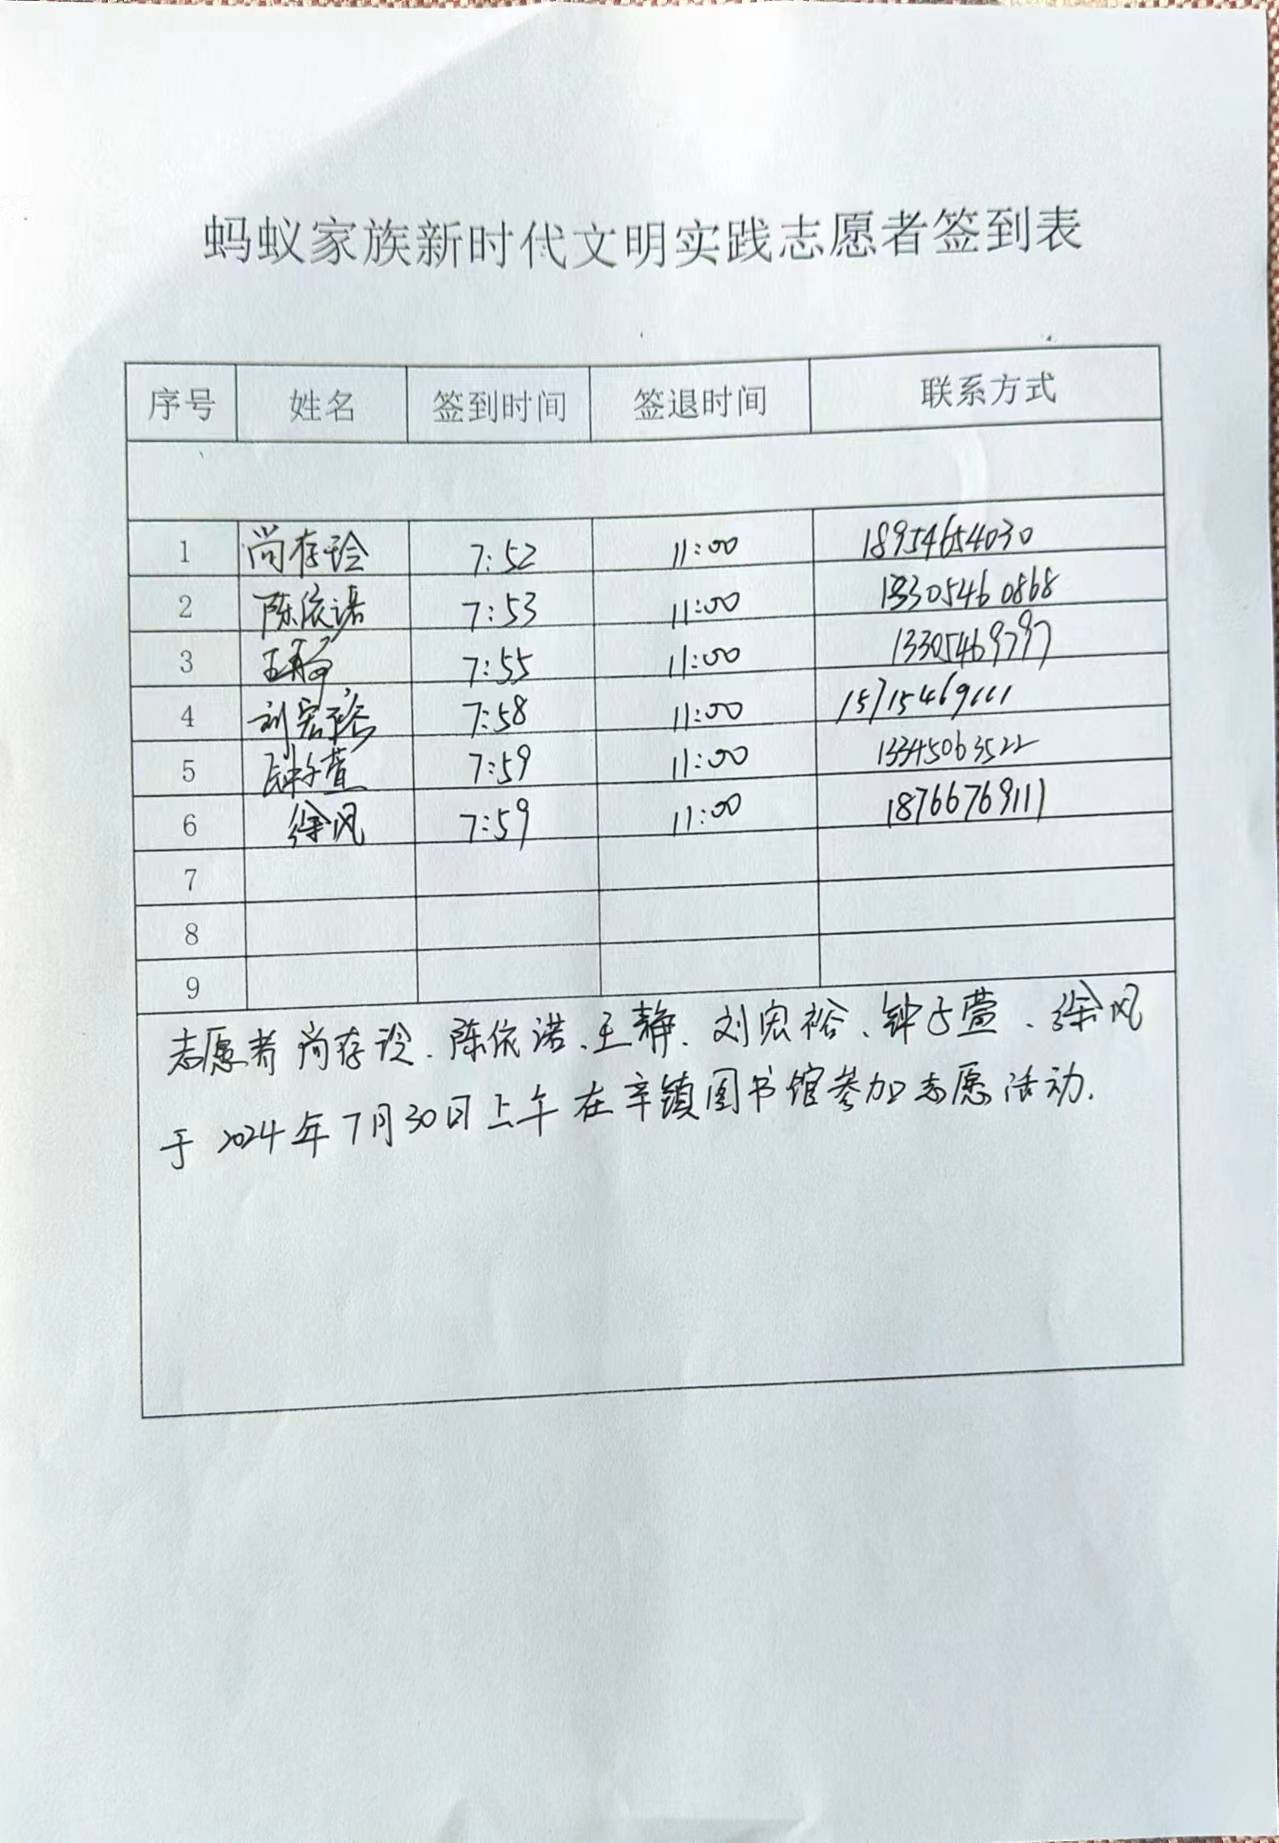 蚂蚁家族新时代文明实践志愿者签到表
序号 姓名 签到时间 签退时间 联系方式
1 尚存玲 7:52 11:00 18954654030
2 陈依诺 7:53 11:00 13305460868
3 王静 7:55 11:00 13305469797
4 刘宏裕 7:58 11:00 15715469111
5 钟子萱 7:59 11:00 13345063522
6 徐风 7:59 11:00 18766769111
7
8
9
志愿者尚存玲、陈依诺、王静、刘宏裕、钟子萱、徐风
于2024年7月30日上午在辛镇图书馆参加志愿活动.